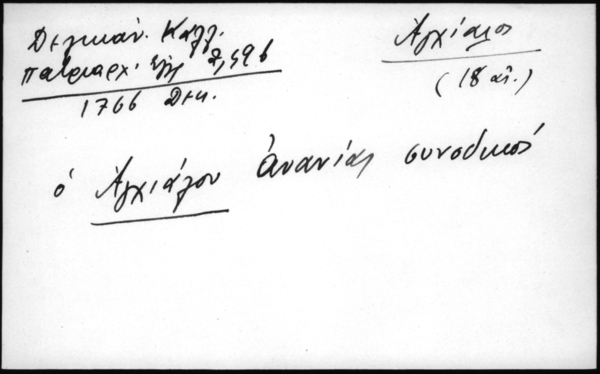 Δελικάν. Καλλ.
Πατριαρχ. Ἐγγ. 2,596
1766 Δεκ.
Ἀγχίαλος
(18 αἰ.)
ὁ Ἀγχιάλου Ἀνανίας συνοδικός